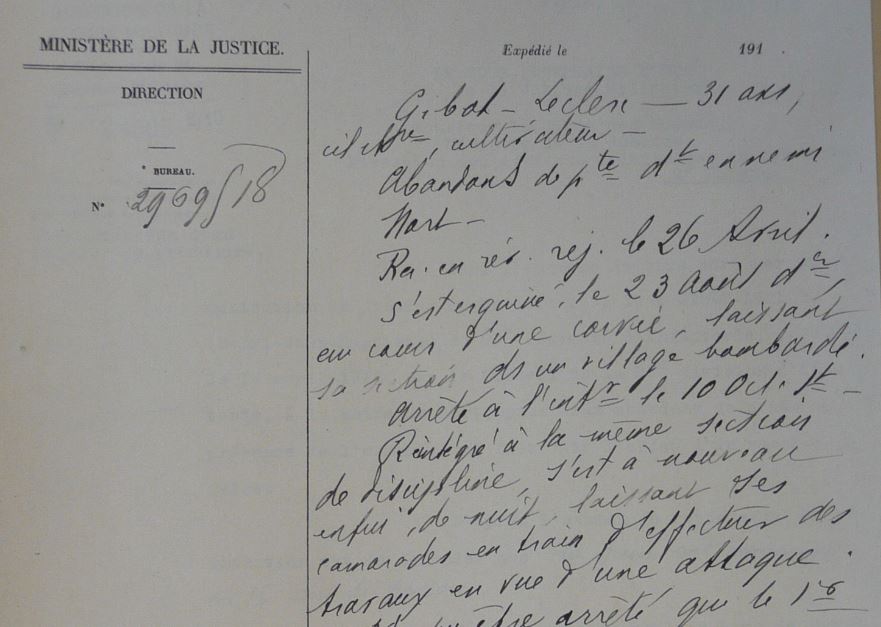 MINISTÈRE DE LA JUSTICE.
Expédié le 191 .
DIRECTION
BUREAU.
N° 2969 S 18
Gibat - Leclerc — 31 ans,
célibre, cultivateur —
Abandons de pte dt ennemi
Mort —
Rec. en rév. rej. le 26 Avril.
S'est esquivé, le 23 Août der,
en cours d'une corvée, laissant
sa section ds un village bombardé.
Arrêté à l'intr le 10 Oct. st —
Réintégré à la même section
de discipline, s'est à nouveau
enfui, de nuit, laissant ses
camarades en train d'effectuer des
travaux en vue d'une attaque.
être arrêté que le 1er